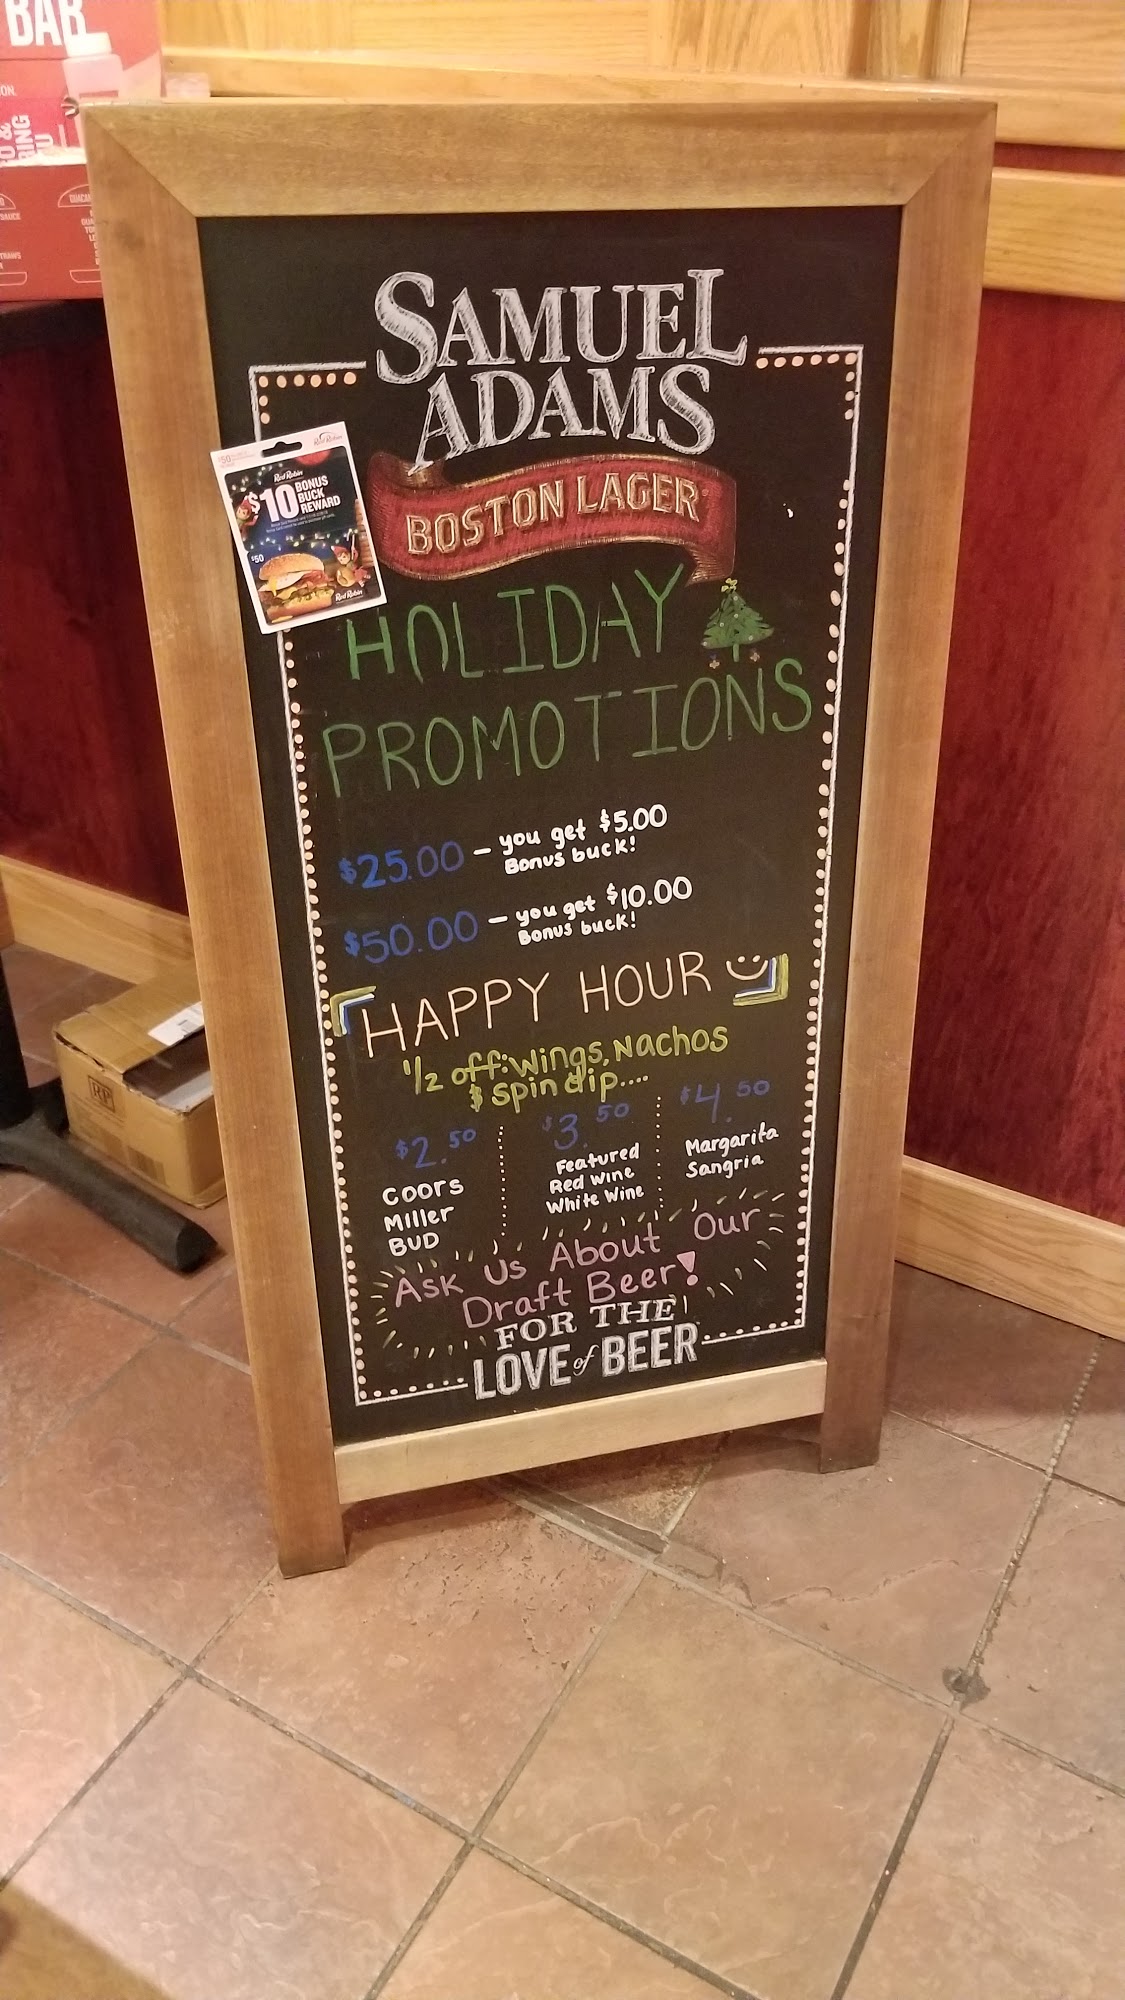 BAR
SAMUEL
ADAMS
BOSTON LAGER
Red Robin
$50
Red Robin
$10 BONUS
BUCK
REWARD
$50
Red Robin
HOLIDAY
PROMOTIONS
$25.00 - you get $5.00
Bonus buck!
$50.00 - you get $10.00
Bonus buck!
HAPPY HOUR
1/2 off: Wings, Nachos
& spin dip....
$2.50
Coors
Miller
BUD
$3.50
Featured
Red Wine
White Wine
$4.50
Margarita
Sangria
Ask Us About Our
Draft Beer!
FOR THE
LOVE of BEER